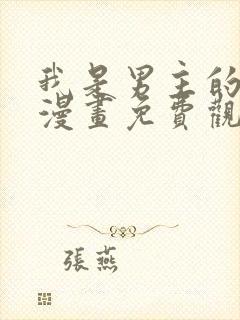 我是男主的
漫畫免費觀
張燕